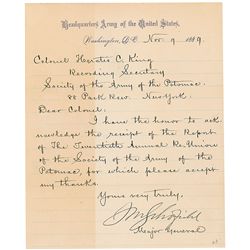 Headquarters Army of the United States,
Washington, D.C. Nov. 9 1889.
Colonel Horatio C. King
Recording Secretary
Society of the Army of the Potomac
88 Park Row. New York.
Dear Colonel:
I have the honor to ack-
nowledge the receipt of the Report
of The Twentieth Annual Re-Union
of the Society of the Army of the
Potomac, for which please accept
my thanks.
Yours very truly,
J M Schofield
Major General